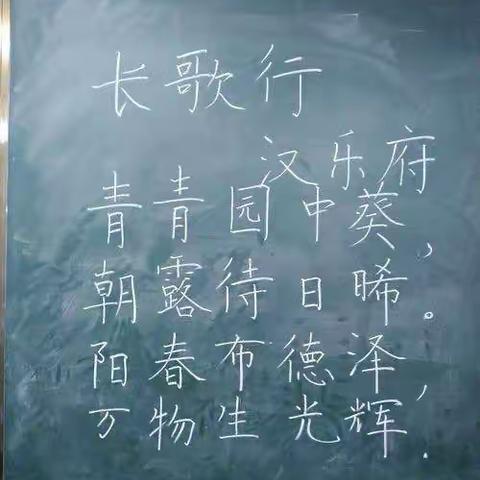 长歌行
汉乐府
青青园中葵，
朝露待日晞。
阳春布德泽，
万物生光辉.